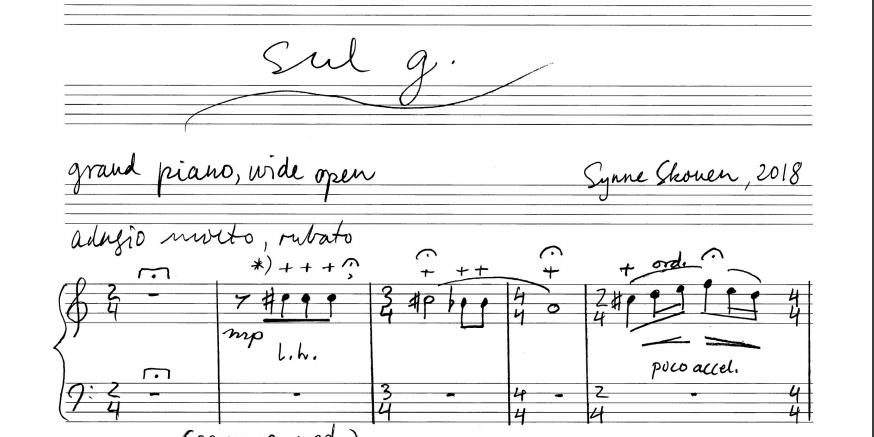 Sul g.
grand piano, wide open
Synne Skouen, 2018
adagio molto, rubato
*) + + + + + + + + ord.
2 4 3 4 4 4 2 4 4 4
mp
l.h.
poco accel.
2 4 3 4 4 4 2 4 4 4